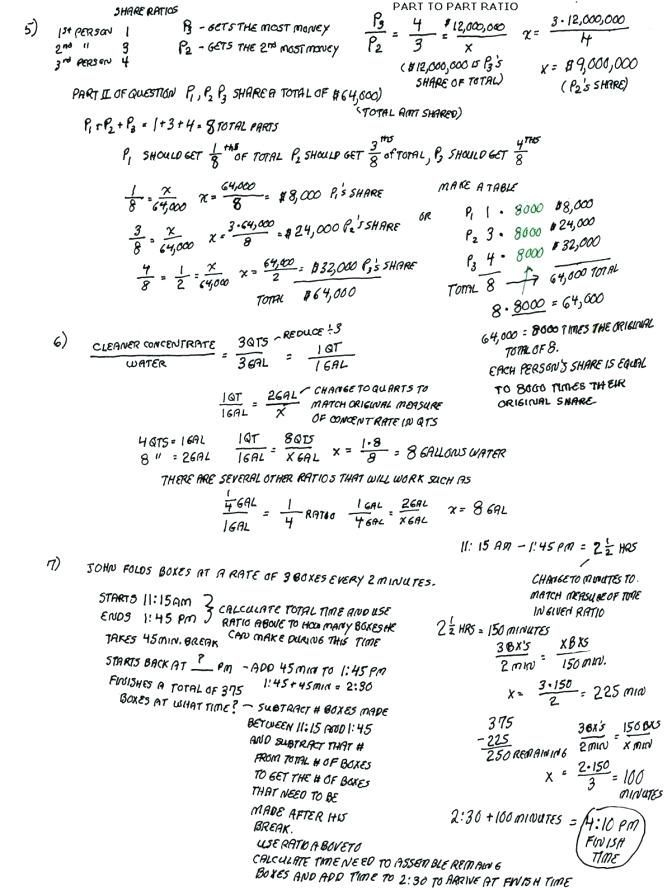 PART TO PART RATIO
SHARE RATIOS
5) 1ST PERSON 1
2nd " 3
3rd PERSON 4
P3 - GETS THE MOST MONEY
P2 - GETS THE 2nd MOST MONEY
P3/P2 = 4/3 = $12,000,000/x x = 3·12,000,000/4
($12,000,000 IS P3's SHARE OF TOTAL)
x = $9,000,000
(P2's SHARE)
PART II OF QUESTION P1, P2 P3 SHARE A TOTAL OF $64,000)
(TOTAL AMT SHARED)
P1+P2+P3 = 1+3+4 = 8 TOTAL PARTS
P1 SHOULD GET 1/8 ths OF TOTAL P2 SHOULD GET 3ths/8 of TOTAL, P3 SHOULD GET 4ths/8
1/8 = x/64,000 x = 64,000/8 = $8,000 P1's SHARE
3/8 = x/64,000 x = 3·64,000/8 = $24,000 P2's SHARE
4/8 = 1/2 = x/64,000 x = 64,000/2 = $32,000 P3's SHARE
TOTAL $64,000
OR
MAKE A TABLE
P1 1 · 8000 $8,000
P2 3 · 8000 $24,000
P3 4 · 8000 $32,000
TOTAL 8 → 64,000 TOTAL
8 · 8000 = 64,000
64,000 = 8000 TIMES THE ORIGINAL
TOTAL OF 8.
EACH PERSON'S SHARE IS EQUAL
TO 8000 TIMES THEIR
ORIGINAL SHARE
6) CLEANER CONCENTRATE/WATER = 3QTS/3GAL = 1QT/1GAL
REDUCE ÷3
1QT/1GAL = 2GAL/X
CHANGE TO QUARTS TO
MATCH ORIGINAL MEASURE
OF CONCENTRATE IN QTS
4 QTS = 1GAL
8 " = 2GAL
1QT/1GAL = 8QTS/XGAL x = 1·8/8 = 8 GALLONS WATER
THERE ARE SEVERAL OTHER RATIOS THAT WILL WORK SUCH AS
1/4 GAL/1GAL = 1/4 RATIO 1GAL/4GAL = 2GAL/XGAL x = 8 GAL
7) JOHN FOLDS BOXES AT A RATE OF 3 BOXES EVERY 2 MINUTES.
STARTS 11:15AM
ENDS 1:45 PM
CALCULATE TOTAL TIME AND USE
RATIO ABOVE TO HOW MANY BOXES HE
CAN MAKE DURING THIS TIME
TAKES 45 MIN. BREAK
STARTS BACK AT ? PM - ADD 45 MIN TO 1:45 PM
1:45 + 45 MIN = 2:30
FINISHES A TOTAL OF 375
BOXES AT WHAT TIME? - SUBTRACT # BOXES MADE
BETWEEN 11:15 AND 1:45
AND SUBTRACT THAT #
FROM TOTAL # OF BOXES
TO GET THE # OF BOXES
THAT NEED TO BE
MADE AFTER HIS
BREAK.
USE RATIO ABOVE TO
CALCULATE TIME NEED TO ASSEMBLE REMAINING
BOXES AND ADD TIME TO 2:30 TO ARRIVE AT FINISH TIME
11:15 AM - 1:45 PM = 2 1/2 HRS
CHANGE TO MINUTES TO
MATCH MEASURE OF TIME
IN GIVEN RATIO
2 1/2 HRS = 150 MINUTES
3 BX'S/2 MIN = X BXS/150 MIN.
x = 3·150/2 = 225 MIN
375
-225
250 REMAINING
3BX'S/2MIN = 150BXS/X MIN
X = 2·150/3 = 100 MINUTES
2:30 + 100 MINUTES = 4:10 PM
FINISH
TIME